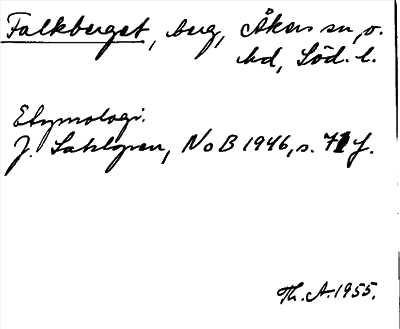 Falkberget, berg, Åkers sn, o.
hd, Söd. l.
Etymologi.
J. Sahlgren, NoB 1946, s. 71 f.
Th. A. 1955.